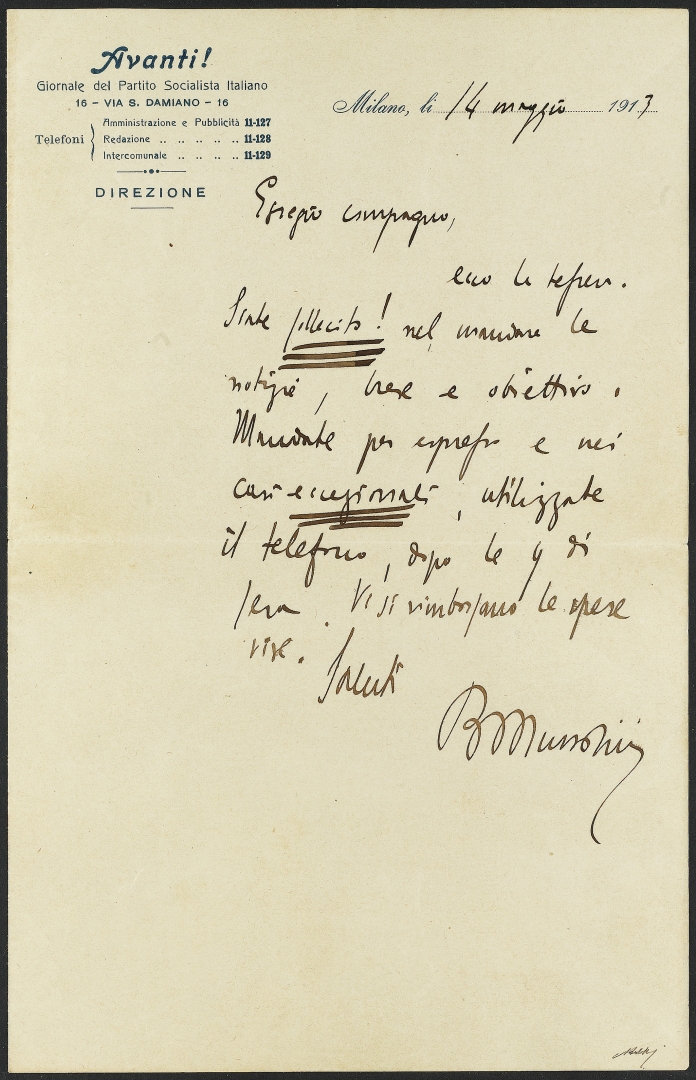 Avanti!
Giornale del Partito Socialista Italiano
16 – VIA S. DAMIANO – 16
Telefoni
Amministrazione e Pubblicità 11-127
Redazione .. .. .. .. .. 11-128
Intercomunale .. .. .. .. 11-129
DIREZIONE
Milano, li 14 maggio 1913
Egregio compagno,
ecco la tessera.
Siate sollecito! nel mandare le
notizie, breve e obiettivo.
Mandate per espresso e nei
casi eccezionali, utilizzate
il telefono, dopo le 9 di
sera. Vi si rimborsano le spese
vive.
Saluti
B Mussolini